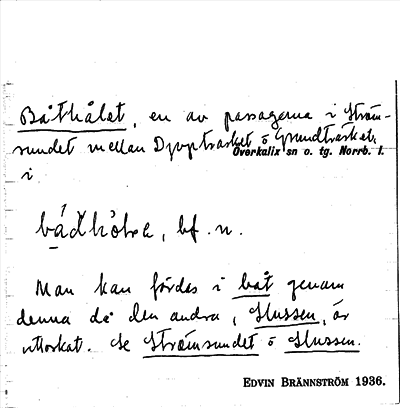 Båthålet, en av passagerna i Ström-
sundet mellan Djupträsket o Grundträsket.
Överkalix sn o. tg. Norrb. l.
i
bf. n.
Man kan färdas i båt genom
denna då den andra, Slussen, är
uttorkat. Se Strömsundet o Slussen.
EDVIN BRÄNNSTRÖM 1936.